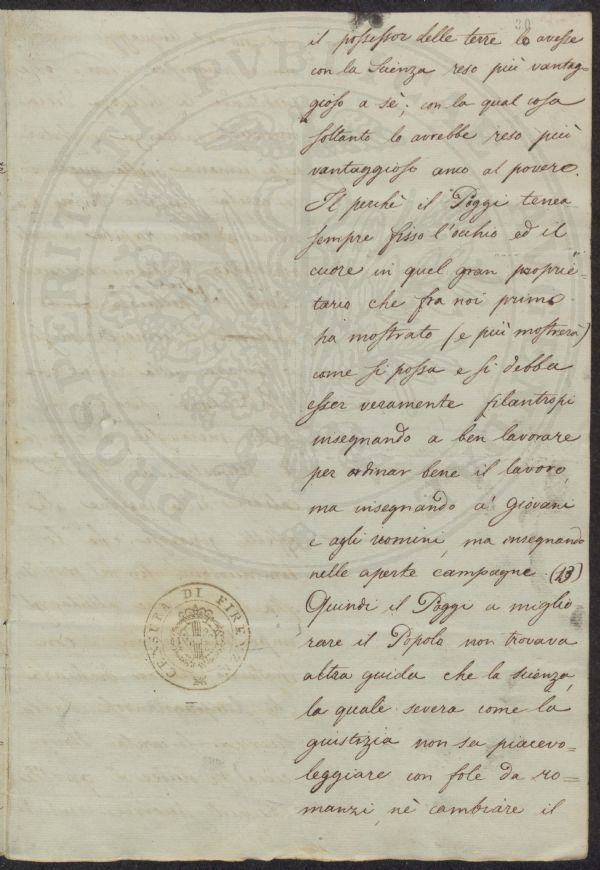 30
il possessor delle terre lo avesse
con la Scienza reso più vantag-
gioso a sè; con la qual cosa
soltanto lo avrebbe reso più
vantaggioso anco al povero.
Il perchè il Poggi tenea
sempre fisso l'occhio ed il
cuore in quel gran proprie=
tario che fra noi primo
ha mostrato (e più mostrerà)
come si possa e si debba
esser veramente filantropi
insegnando a ben lavorare
per ordinar bene il lavoro,
ma insegnando a' giovani
e agli uomini, ma insegnando
nelle aperte campagne. (13)
Quindi il Poggi a miglio
rare il Popolo non trovava
altra guida che la scienza,
la quale severa come la
giustizia non sa piacevo-
leggiare con fole da ro=
manzi, nè cambiare il
CENSURA DI FIRENZE